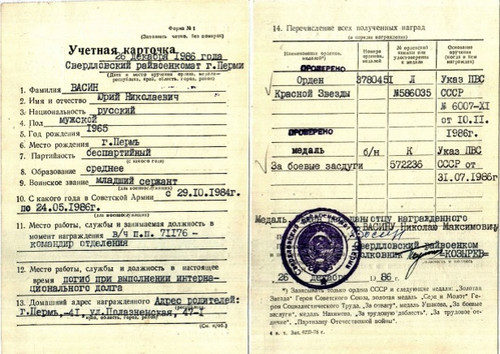 Форма № 1
(Заполнять четко, без помарок)
Учетная карточка
26 декабря 1986 года
Свердловский райвоенкомат г.Перми
1. Фамилия ВАСИН
2. Имя и отчество Юрий Николаевич
3. Национальность русский
4. Пол мужской
5. Год рождения 1965
6. Место рождения г.Пермь
7. Партийность беспартийный
(с какого года)
8. Образование среднее
9. Воинское звание младший сержант
10. С какого года в Советской Армии с 29.10.1984г.
по 24.05.1986г.
11. Место работы, службы и занимаемая должность в
момент награждения в/ч п.п. 71176-
командир отделения
12. Место работы, службы и должность в настоящее
время погиб при выполнении интерна-
ционального долга
13. Домашний адрес награжденного Адрес родителей:
г.Пермь,-41, ул.Полазненская, 47-1
(См. н/об.)
14. Перечисление всех полученных наград
(в порядке награждения)
ПРОВЕРЕНО
Орден 3780451 Л Указ ПВС
Красной Звезды №586035 СССР
№ 6007-XI
от 10.11.
ПРОВЕРЕНО 1986г.
медаль б/н К Указ ПВС
За боевые заслуги 572236 СССР от
31.07.1986г
Медаль отцу награжденного
ВАСИНУ Николаю Максимовичу
Свердловский райвоенком
КОЗЫРЕВ
26 декабря 86 г.
*) Записывать только ордена СССР и следующие медали: „Золотая
Звезда" Героя Советского Союза, золотая медаль „Серп и Молот" Ге-
роя Социалистического Труда, „За отвагу", медаль Ушакова, „За боевые
заслуги", медаль Нахимова, „За трудовую доблесть", „За трудовое от-
личие", „Партизану Отечественной войны".